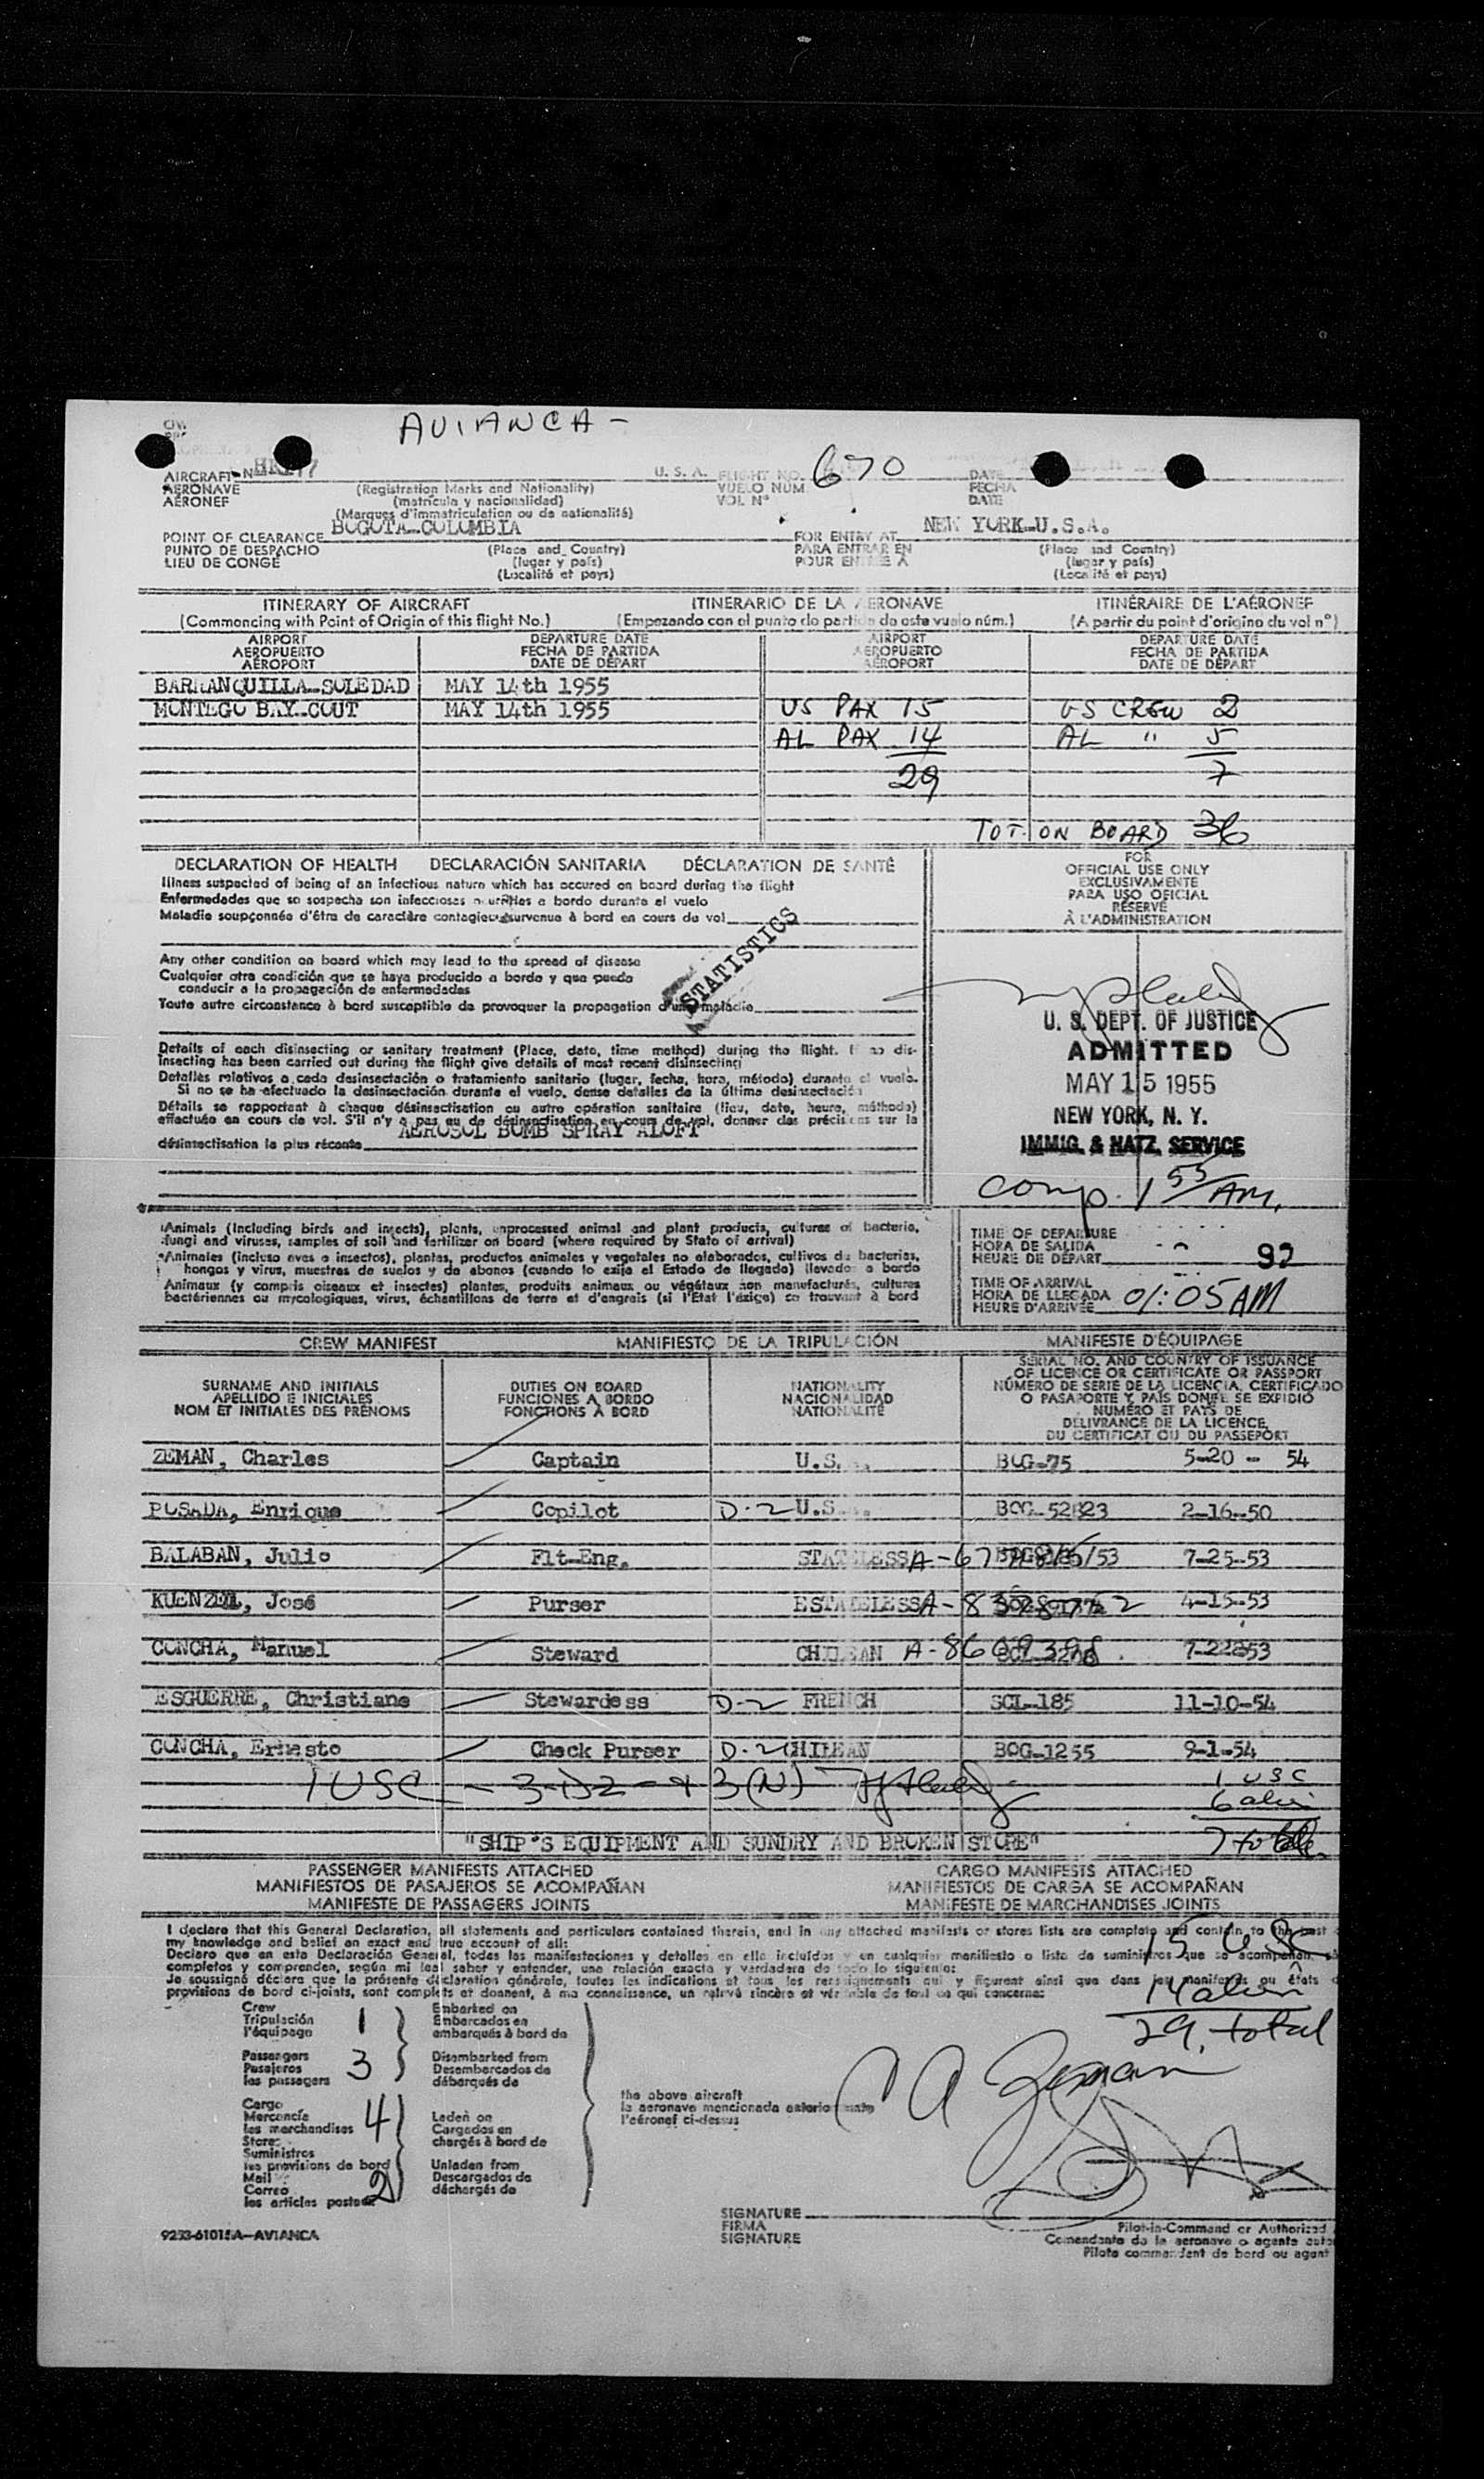 AVIANCA -
AIRCRAFT
AERONAVE
AÉRONEF
(Registration Marks and Nationality)
(matrícula y nacionalidad)
(Marques d'immatriculation ou de nationalité)
U. S. A. FLIGHT NO. 670
VUELO NUM.
VOL Nº
DATE
FECHA
DATE
POINT OF CLEARANCE BOGOTA-COLOMBIA
PUNTO DE DESPACHO
LIEU DE CONGÉ
(Place and Country)
(lugar y país)
(Localité et pays)
FOR ENTRY AT NEW YORK-U.S.A.
PARA ENTRAR EN
POUR ENTRÉE A
(Place and Country)
(lugar y país)
(Localité et pays)
ITINERARY OF AIRCRAFT ITINERARIO DE LA AERONAVE ITINÉRAIRE DE L'AÉRONEF
(Commencing with Point of Origin of this flight No.) (Empezando con el punto de partida de este vuelo núm.) (A partir du point d'origine du vol nº)
AIRPORT DEPARTURE DATE AIRPORT DEPARTURE DATE
AEROPUERTO FECHA DE PARTIDA AEROPUERTO FECHA DE PARTIDA
AÉROPORT DATE DE DÉPART AÉROPORT DATE DE DÉPART
BARRANQUILLA-SOLEDAD MAY 14th 1955
MONTEGO BAY-COUT MAY 14th 1955 US PAX 15 US CREW 2
AL PAX 14 AL " 5
29 7
TOT. ON BOARD 36
DECLARATION OF HEALTH DECLARACIÓN SANITARIA DÉCLARATION DE SANTÉ
Illness suspected of being of an infectious nature which has occured on board during the flight
Enfermedades que se sospecha son infecciosas ocurridas a bordo durante el vuelo
Maladie soupçonnée d'être de caractère contagieux survenue à bord en cours de vol
Any other condition on board which may lead to the spread of disease
Cualquier otra condición que se haya producido a bordo y que pueda
conducir a la propagación de enfermedades
Toute autre circonstance à bord susceptible de provoquer la propagation d'une maladie
STATISTICS
Details of each disinsecting or sanitary treatment (Place, date, time method) during the flight. If no dis-
insecting has been carried out during the flight give details of most recent disinsecting
Detalles relativos a cada desinsectación o tratamiento sanitario (lugar, fecha, hora, método) durante el vuelo.
Si no se ha efectuado la desinsectación durante el vuelo, dense detalles de la última desinsectación
Détails se rapportant à chaque désinsectisation ou autre opération sanitaire (lieu, date, heure, méthode)
effectuée en cours de vol. S'il n'y a pas eu de désinsectisation en cours de vol, donner des précisions sur la
désinsectisation la plus récente AEROSOL BOMB SPRAY ALOFT
FOR
OFFICIAL USE ONLY
EXCLUSIVAMENTE
PARA USO OFICIAL
RESERVÉ
À L'ADMINISTRATION
U. S. DEPT. OF JUSTICE
ADMITTED
MAY 15 1955
NEW YORK, N. Y.
IMMIG. & NATZ. SERVICE
comp. 1 55 AM.
Animals (including birds and insects), plants, unprocessed animal and plant products, cultures of bacteria,
fungi and viruses, samples of soil and fertilizer on board (where required by State of arrival)
Animales (incluso aves e insectos), plantas, productos animales y vegetales no elaborados, cultivos de bacterias,
hongos y virus, muestras de suelos y de abonos (cuando lo exija el Estado de llegada) llevados a bordo
Animaux (y compris oiseaux et insectes) plantes, produits animaux ou végétaux non manufacturés, cultures
bactériennes ou mycologiques, virus, échantillons de terre et d'engrais (si l'Etat l'éxige) se trouvant à bord
TIME OF DEPARTURE
HORA DE SALIDA
HEURE DE DÉPART
TIME OF ARRIVAL
HORA DE LLEGADA
HEURE D'ARRIVÉE 01:05 AM
CREW MANIFEST MANIFIESTO DE LA TRIPULACIÓN MANIFESTE D'ÉQUIPAGE
SURNAME AND INITIALS
APELLIDO E INICIALES
NOM ET INITIALES DES PRÉNOMS
DUTIES ON BOARD
FUNCIONES A BORDO
FONCTIONS À BORD
NATIONALITY
NACIONALIDAD
NATIONALITÉ
SERIAL NO. AND COUNTRY OF ISSUANCE
OF LICENCE OR CERTIFICATE OR PASSPORT
NÚMERO DE SERIE DE LA LICENCIA, CERTIFICADO
O PASAPORTE Y PAÍS DONDE SE EXPIDIÓ
NUMÉRO ET PAYS DE
DÉLIVRANCE DE LA LICENCE,
DU CERTIFICAT OU DU PASSEPORT
ZEMAN, Charles Captain U.S. BOG-75 5-20 - 54
POSADA, Enrique Copilot D-2 U.S. 2-16-50
BALABAN, Julio Flt-Eng. STATELESS 7-25-53
KUENZEL, José Purser ESTATELESS 4-15-53
CONCHA, Manuel Steward CHILEAN
ESGUERRE, Christiane Stewardess D-2 FRENCH SCL-185 11-10-54
CONCHA, Ernesto Check Purser D-2 CHILEAN BOG-1255 9-1-54
1 USC - 3-D2 - + 3(N) 1 USC
6 alien
"SHIP'S EQUIPMENT AND SUNDRY AND BROKEN STORE" 7 total
PASSENGER MANIFESTS ATTACHED CARGO MANIFESTS ATTACHED
MANIFIESTOS DE PASAJEROS SE ACOMPAÑAN MANIFIESTOS DE CARGA SE ACOMPAÑAN
MANIFESTE DE PASSAGERS JOINTS MANIFESTE DE MARCHANDISES JOINTS
I declare that this General Declaration, all statements and particulars contained therein, and in any attached manifests or stores lists are complete and contain to the best
my knowledge and belief an exact and true account of all:
Declaro que en esta Declaración General, todas las manifestaciones y detalles en ella incluídos y en cualquier manifiesto o lista de suministros que se acompañan,
completos y comprenden, según mi leal saber y entender, una relación exacta y verdadera de todo lo siguiente:
Je soussigné déclare que la présente déclaration générale, toutes les indications et tous les renseignements qui y figurent ainsi que dans les manifestes ou états
provisions de bord ci-joints, sont complets et donnent, à ma connaissance, un relevé sincère et véritable de tout ce qui concerne:
15 USC
14 alien
29, total
Crew
Tripulación 1
l'équipage
Embarked on
Embarcados en
embarqués à bord de
Passengers
Pasajeros 3
les passagers
Disembarked from
Desembarcados de
débarqués de
Cargo
Mercancía 4
les marchandises
Stores
Suministros
les provisions de bord
Mail
Correo 2
les articles postaux
Laden on
Cargados en
chargés à bord de
Unladen from
Descargados de
déchargés de
the above aircraft
la aeronave mencionada anteriormente
l'aéronef ci-dessus
C A Zeman
SIGNATURE
FIRMA
SIGNATURE
Pilot-in-Command or Authorized
Comandante de la aeronave o agente
Pilote commandant de bord ou agent
9253-61015A-AVIANCA